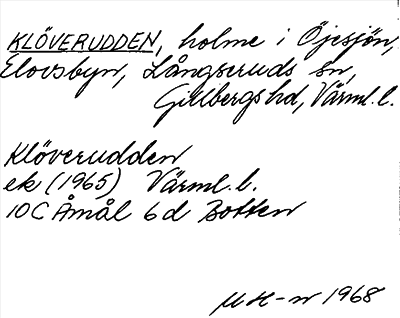 KLÖVERUDDEN, holme i Öjesjön,
Elovsbyn, Långseruds sn,
Gillbergs hd, Värml. l.
Klöverudden
ek (1965) Värml. l.
10C Åmål 6d Botten
MH-n 1968